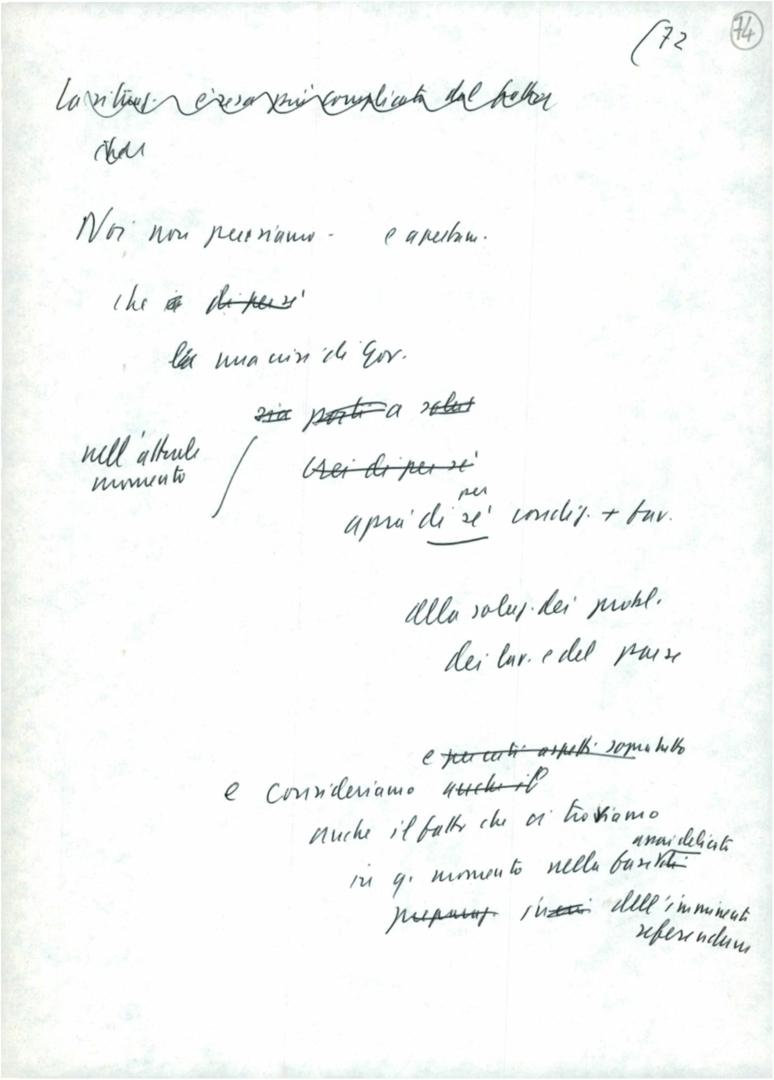 (72 74
La situaz. è resa più complicata dal fatto
che
Noi non pensiamo - e apertam.
che è di per sé
la una crisi di Gov.
sia porti a soluz
crei di per sé
nell'attuale
momento
per
apra di sé condiz. + fav.
alla soluz. dei probl.
dei lav. e del paese
e per certi aspetti sopratutto
e consideriamo anche il
anche il fatto che ci troviamo
assai delicata
in q. momento nella fase
preparaz. in dell'imminente
referendum